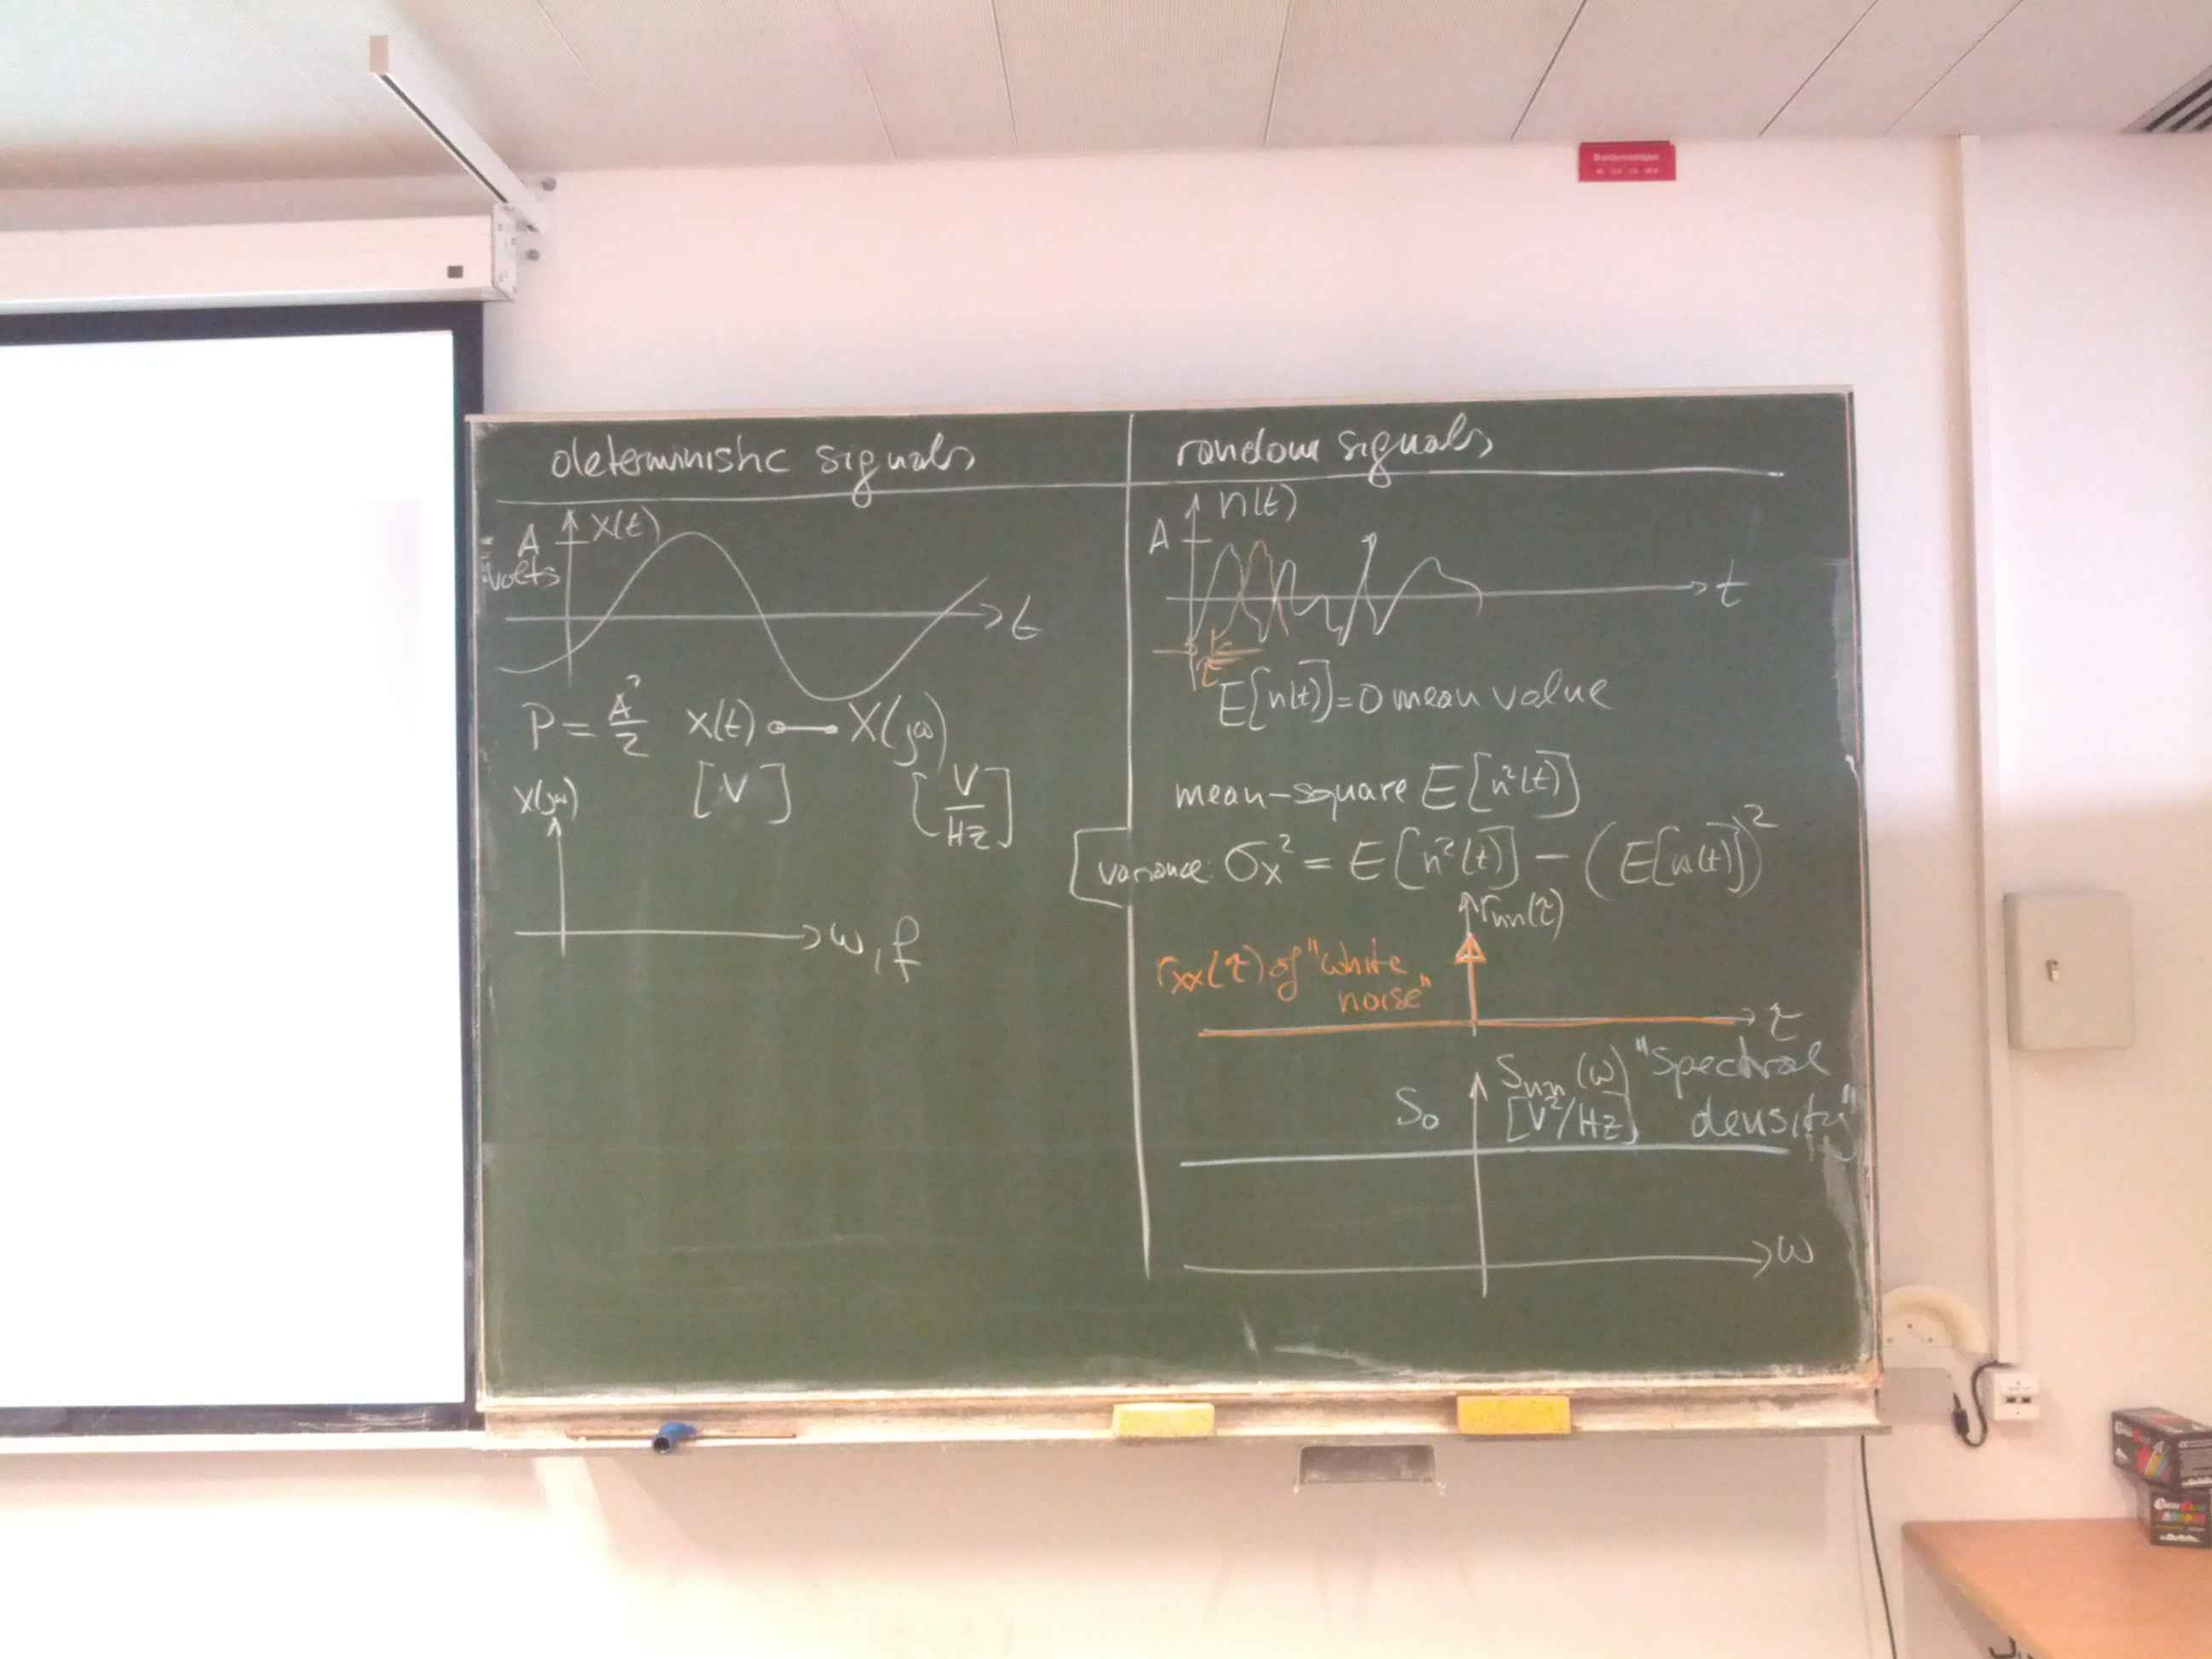 deterministic signals
A
volts
x(t)
t
P = A²/2 x(t) ∘—• X(jω)
[V] [V/Hz]
X(jω)
ω, f
random signals
n(t)
A
t
τ
E[n(t)] = 0 mean value
mean-square E[n²(t)]
variance: σx² = E[n²(t)] - (E[n(t)])²
rnn(τ)
rxx(τ) of "white
noise"
τ
Snn(ω) "Spectral
S₀ [V²/Hz] density"
ω